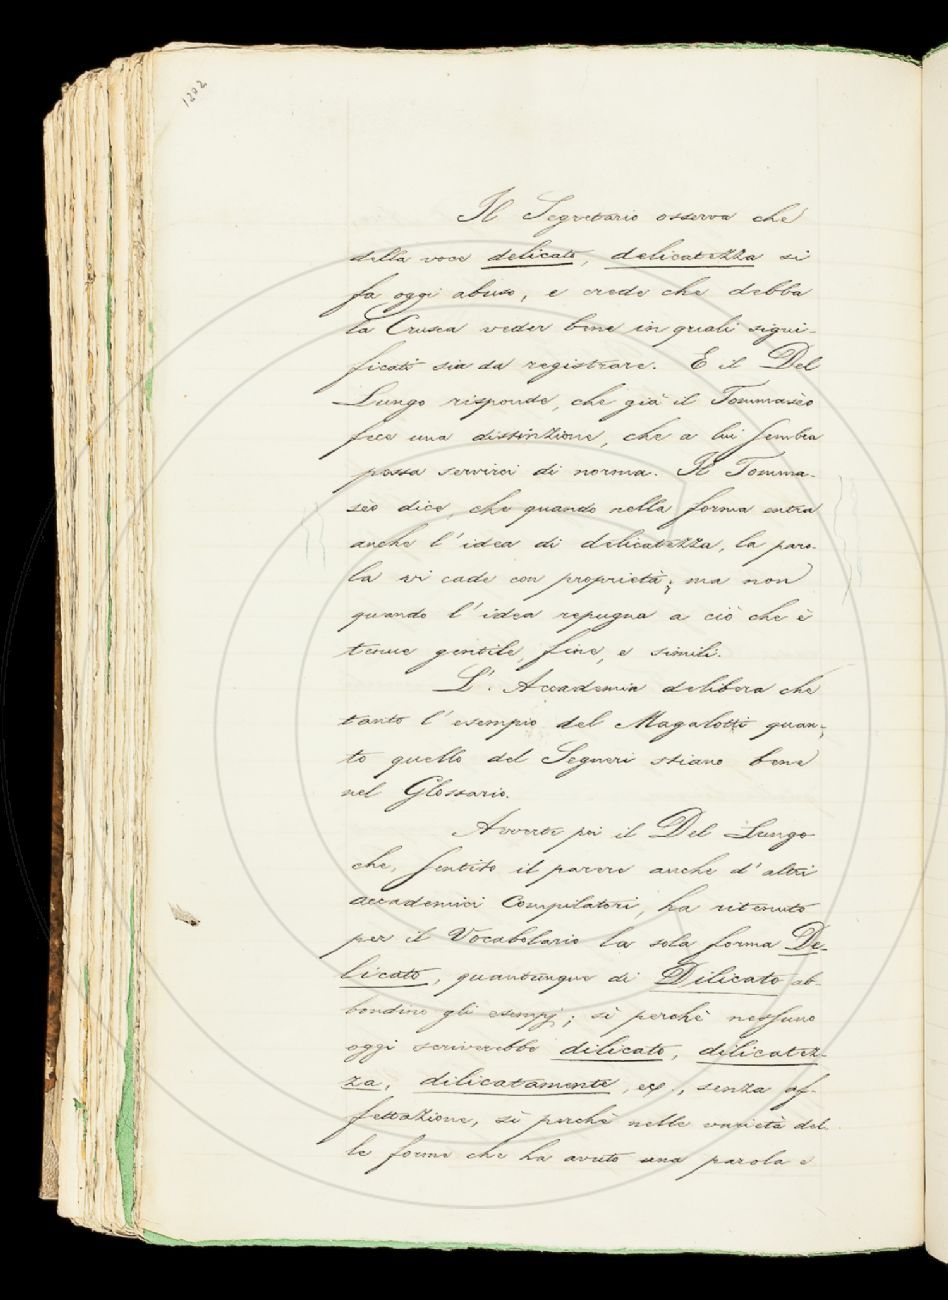 1292
Il Segretario osserva che
della voce delicato, delicatezza si
fa oggi abuso, e crede che debba
la Crusca veder bene in quali signi-
ficati sia da registrare. E il Del
Lungo risponde, che già il Tommasèo
fece una distinzione, che a lui sembra
possa servirci di norma. Il Tomma-
sèo dice, che quando nella forma entra
anche l'idea di delicatezza, la paro-
la vi cade con proprietà; ma non
quando l'idea repugna a ciò che è
tenue gentile, fine, e simili.
L'Accademia delibera che
tanto l'esempio del Magalotti quan-
to quello del Segneri stiano bene
nel Glossario.
Avverte poi il Del Lungo
che, sentito il parere anche d'altri
accademici Compilatori, ha ritenuto
per il Vocabolario la sola forma De-
licato, quantunque di Dilicato ab-
bondino gli esempj; sì perchè nessuno
oggi scriverebbe dilicato, dilicatez-
za, dilicatamente, ec, senza af-
fettazione, sì perchè nelle varietà del-
le forme che ha avuto una parola e